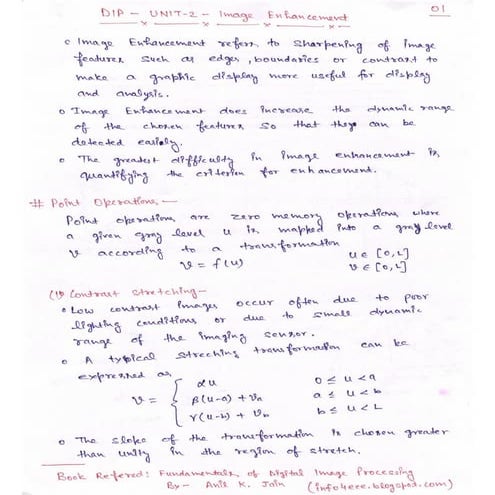 DIP - UNIT-2 - Image Enhancement
01
o Image Enhancement refers to sharpening of image
features such as edges, boundaries or contrast to
make a graphic display more useful for display
and analysis.
o Image Enhancement does increase the dynamic range
of the chosen features so that they can be
detected easily.
o The greatest difficulty in image enhancement is,
quantifying the criterion for enhancement.
# Point Operations —
Point operations are zero memory operations where
a given gray level u is mapped into a gray level
v according to a transformation
v = f(u) u ∈ [0,L]
v ∈ [0,L]
(1) Contrast Stretching—
o Low contrast images occur often due to poor
lighting conditions or due to small dynamic
range of the imaging sensor.
o A typical streching transformation can be
expressed as,
v = { αu 0 ≤ u < a
β(u-a) + va a ≤ u < b
γ(u-b) + vb b ≤ u < L
o The slope of the transformation is chosen greater
than unity in the region of stretch.
Book Refered: Fundamentals of Digital Image Processing
By - Anil K. Jain (info4eee.blogspot.com)